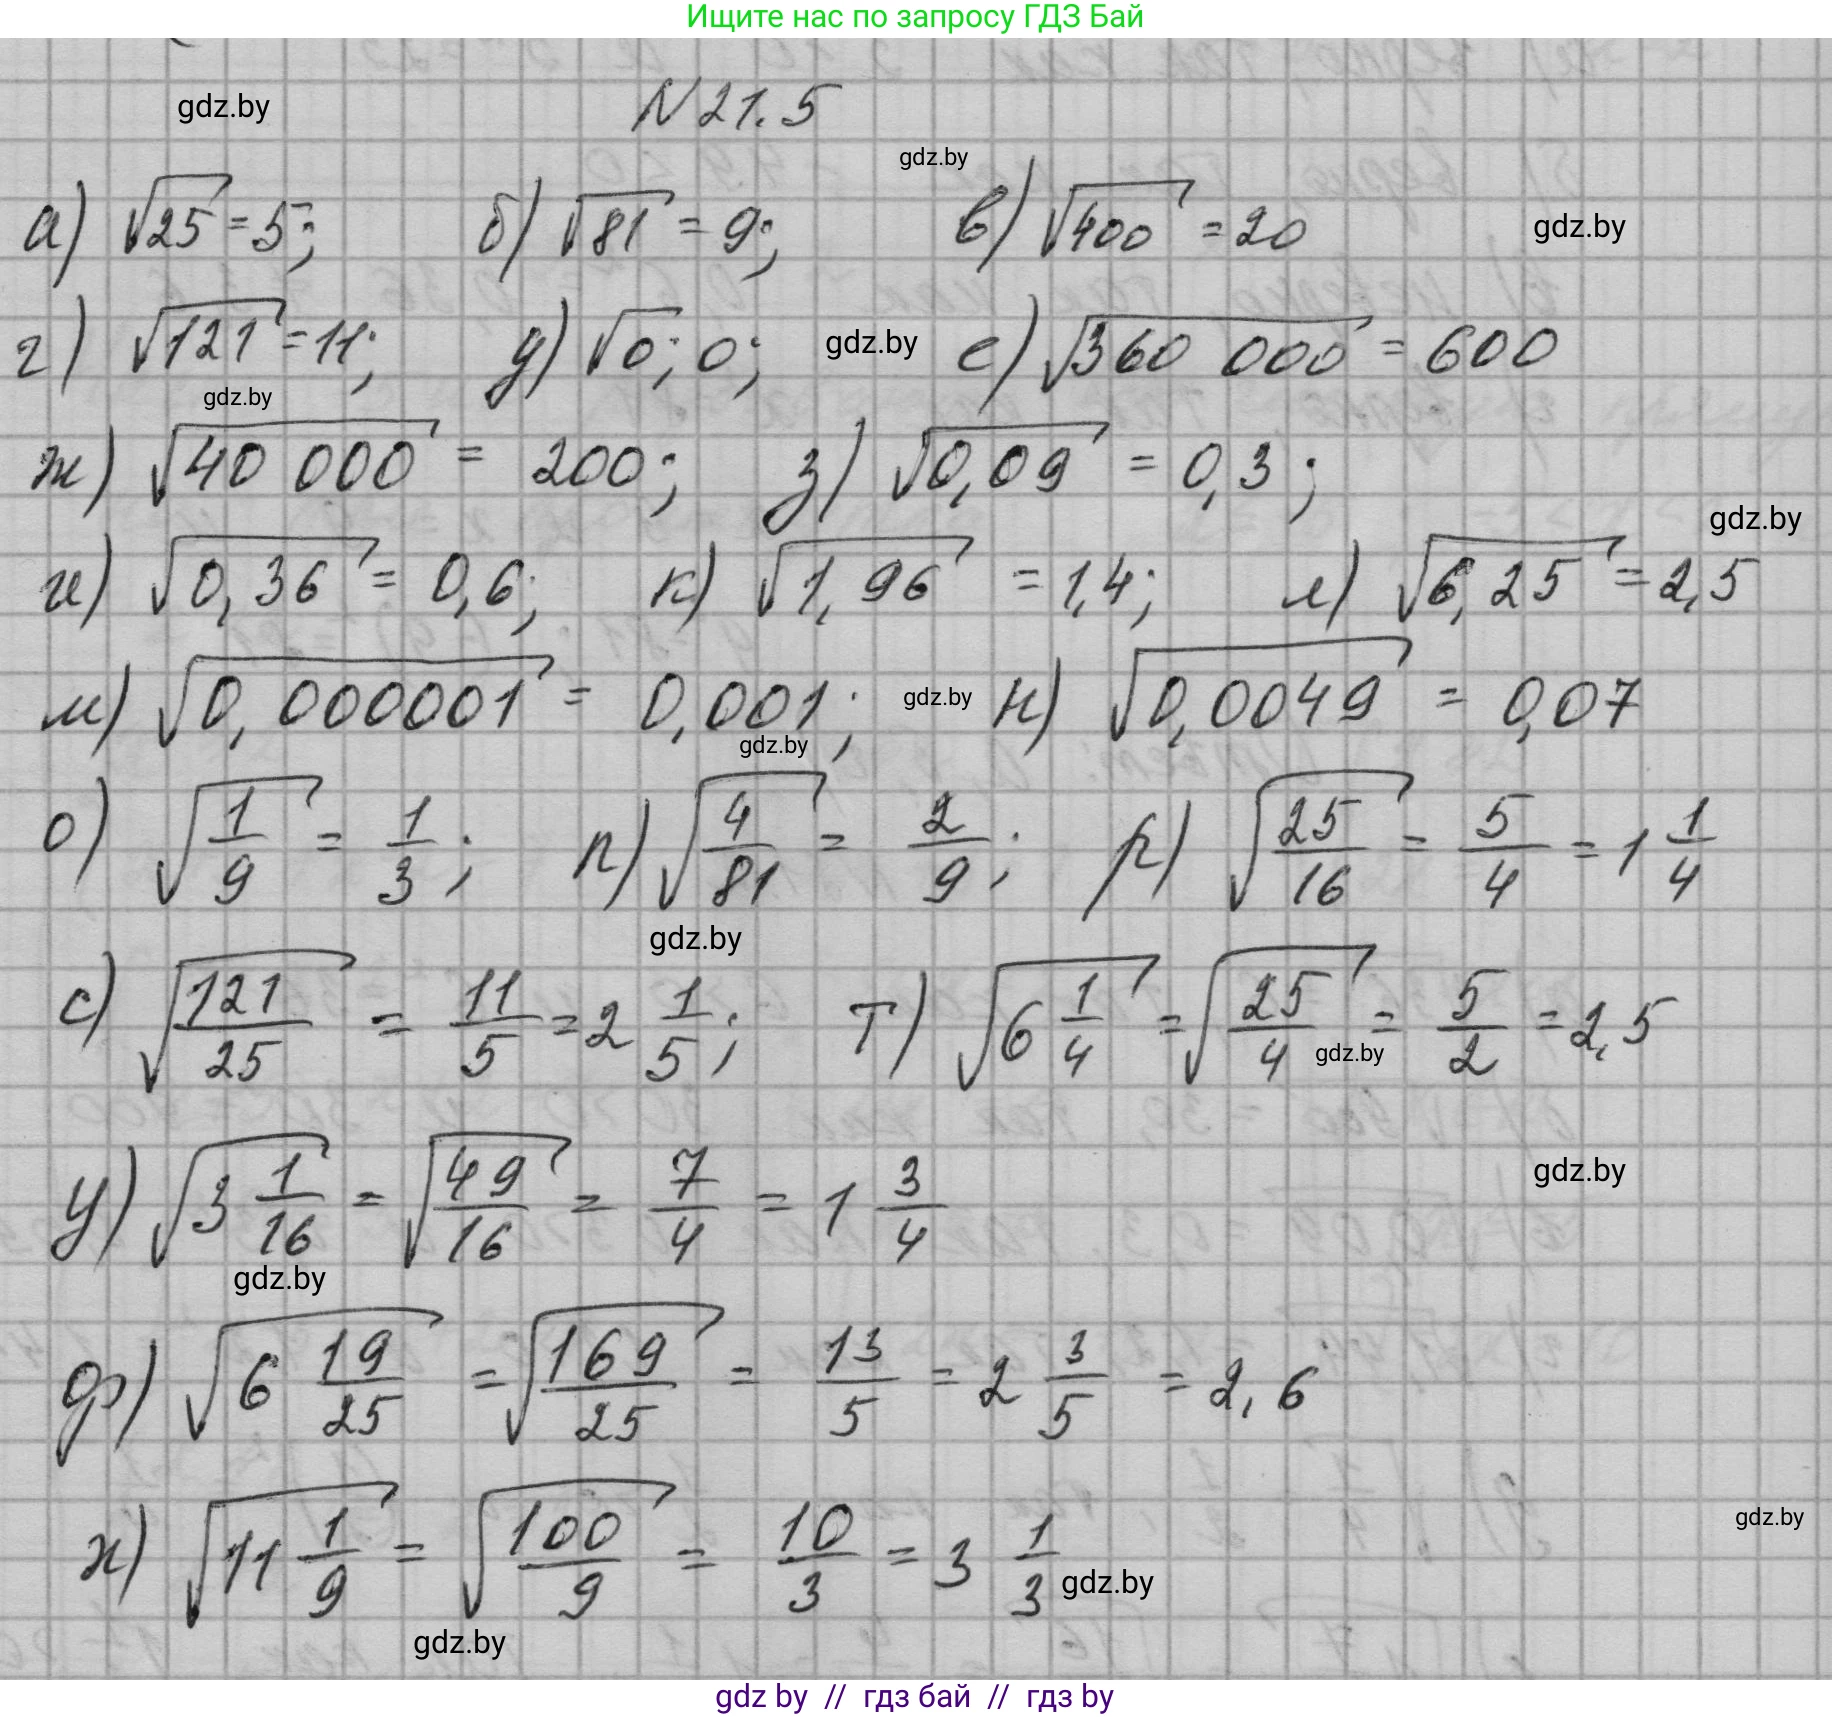 Ищите нас по запросу ГДЗ Бай
gdz.by
N 21.5
gdz.by
а) √25 = 5; б) √81 = 9; в) √400 = 20 gdz.by
г) √121 = 11; д) √0; 0; gdz.by е) √360 000 = 600
gdz.by
ж) √40 000 = 200; з) √0,09 = 0,3;
gdz.by
и) √0,36 = 0,6; к) √1,96 = 1,4; л) √6,25 = 2,5
м) √0,000001 = 0,001; gdz.by н) √0,0049 = 0,07
gdz.by
о) √(1/9) = 1/3; п) √(4/81) = 2/9; р) √(25/16) = 5/4 = 1 1/4
gdz.by
с) √(121/25) = 11/5 = 2 1/5; т) √(6 1/4) = √(25/4) = 5/2 = 2,5
gdz.by
у) √(3 1/16) = √(49/16) = 7/4 = 1 3/4
gdz.by
gdz.by
ф) √(6 19/25) = √(169/25) = 13/5 = 2 3/5 = 2,6
gdz.by
х) √(11 1/9) = √(100/9) = 10/3 = 3 1/3
gdz.by
gdz.by
gdz by // гдз бай // гдз by